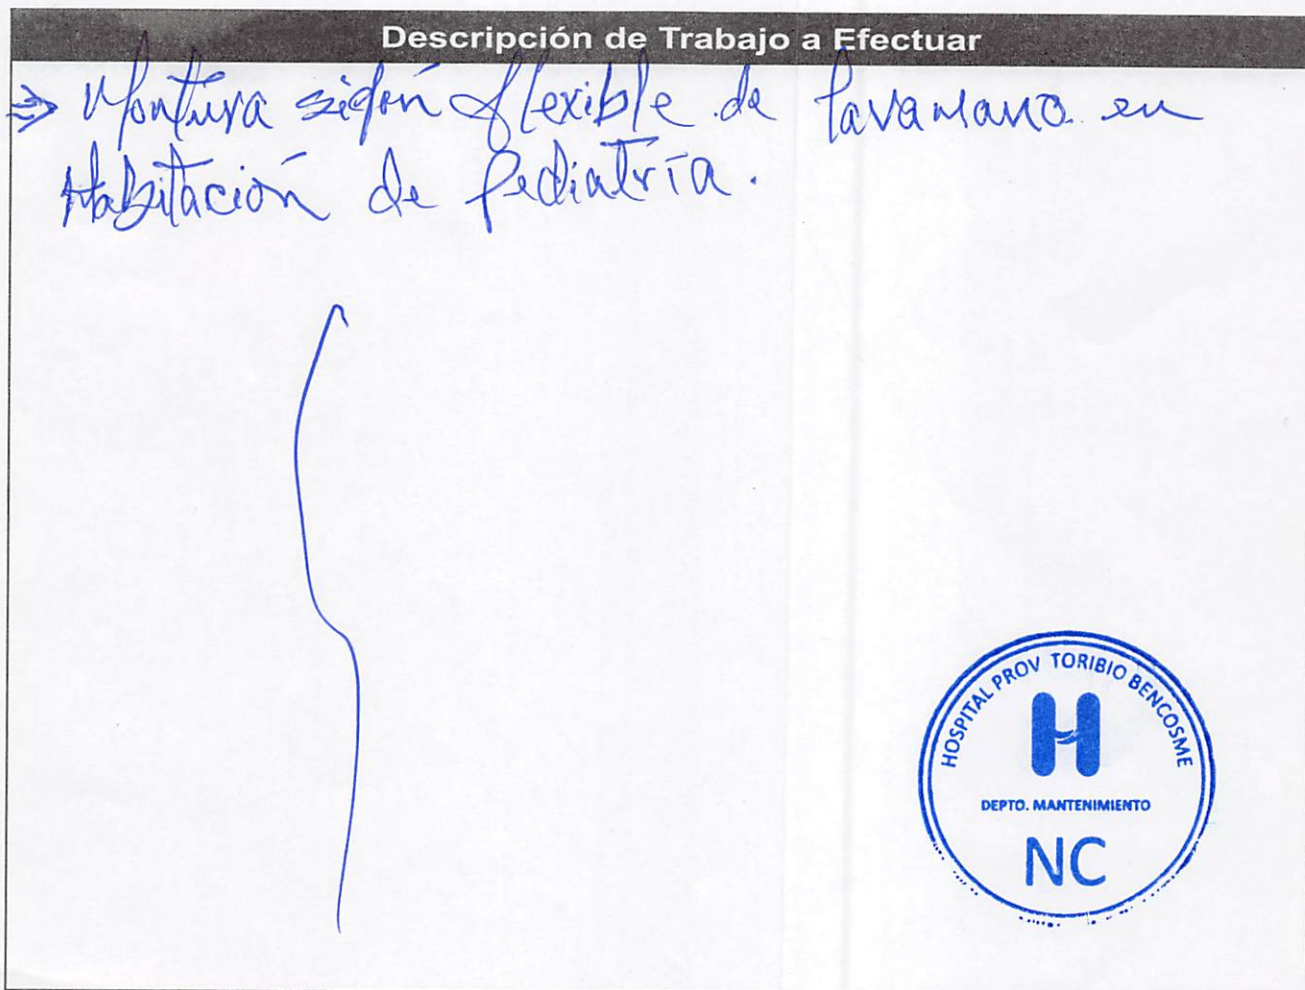 Descripción de Trabajo a Efectuar
⇒ Montura sifón flexible de lavamano en
Habitación de Pediatría.
HOSPITAL PROV TORIBIO BENCOSME
H
DEPTO. MANTENIMIENTO
NC